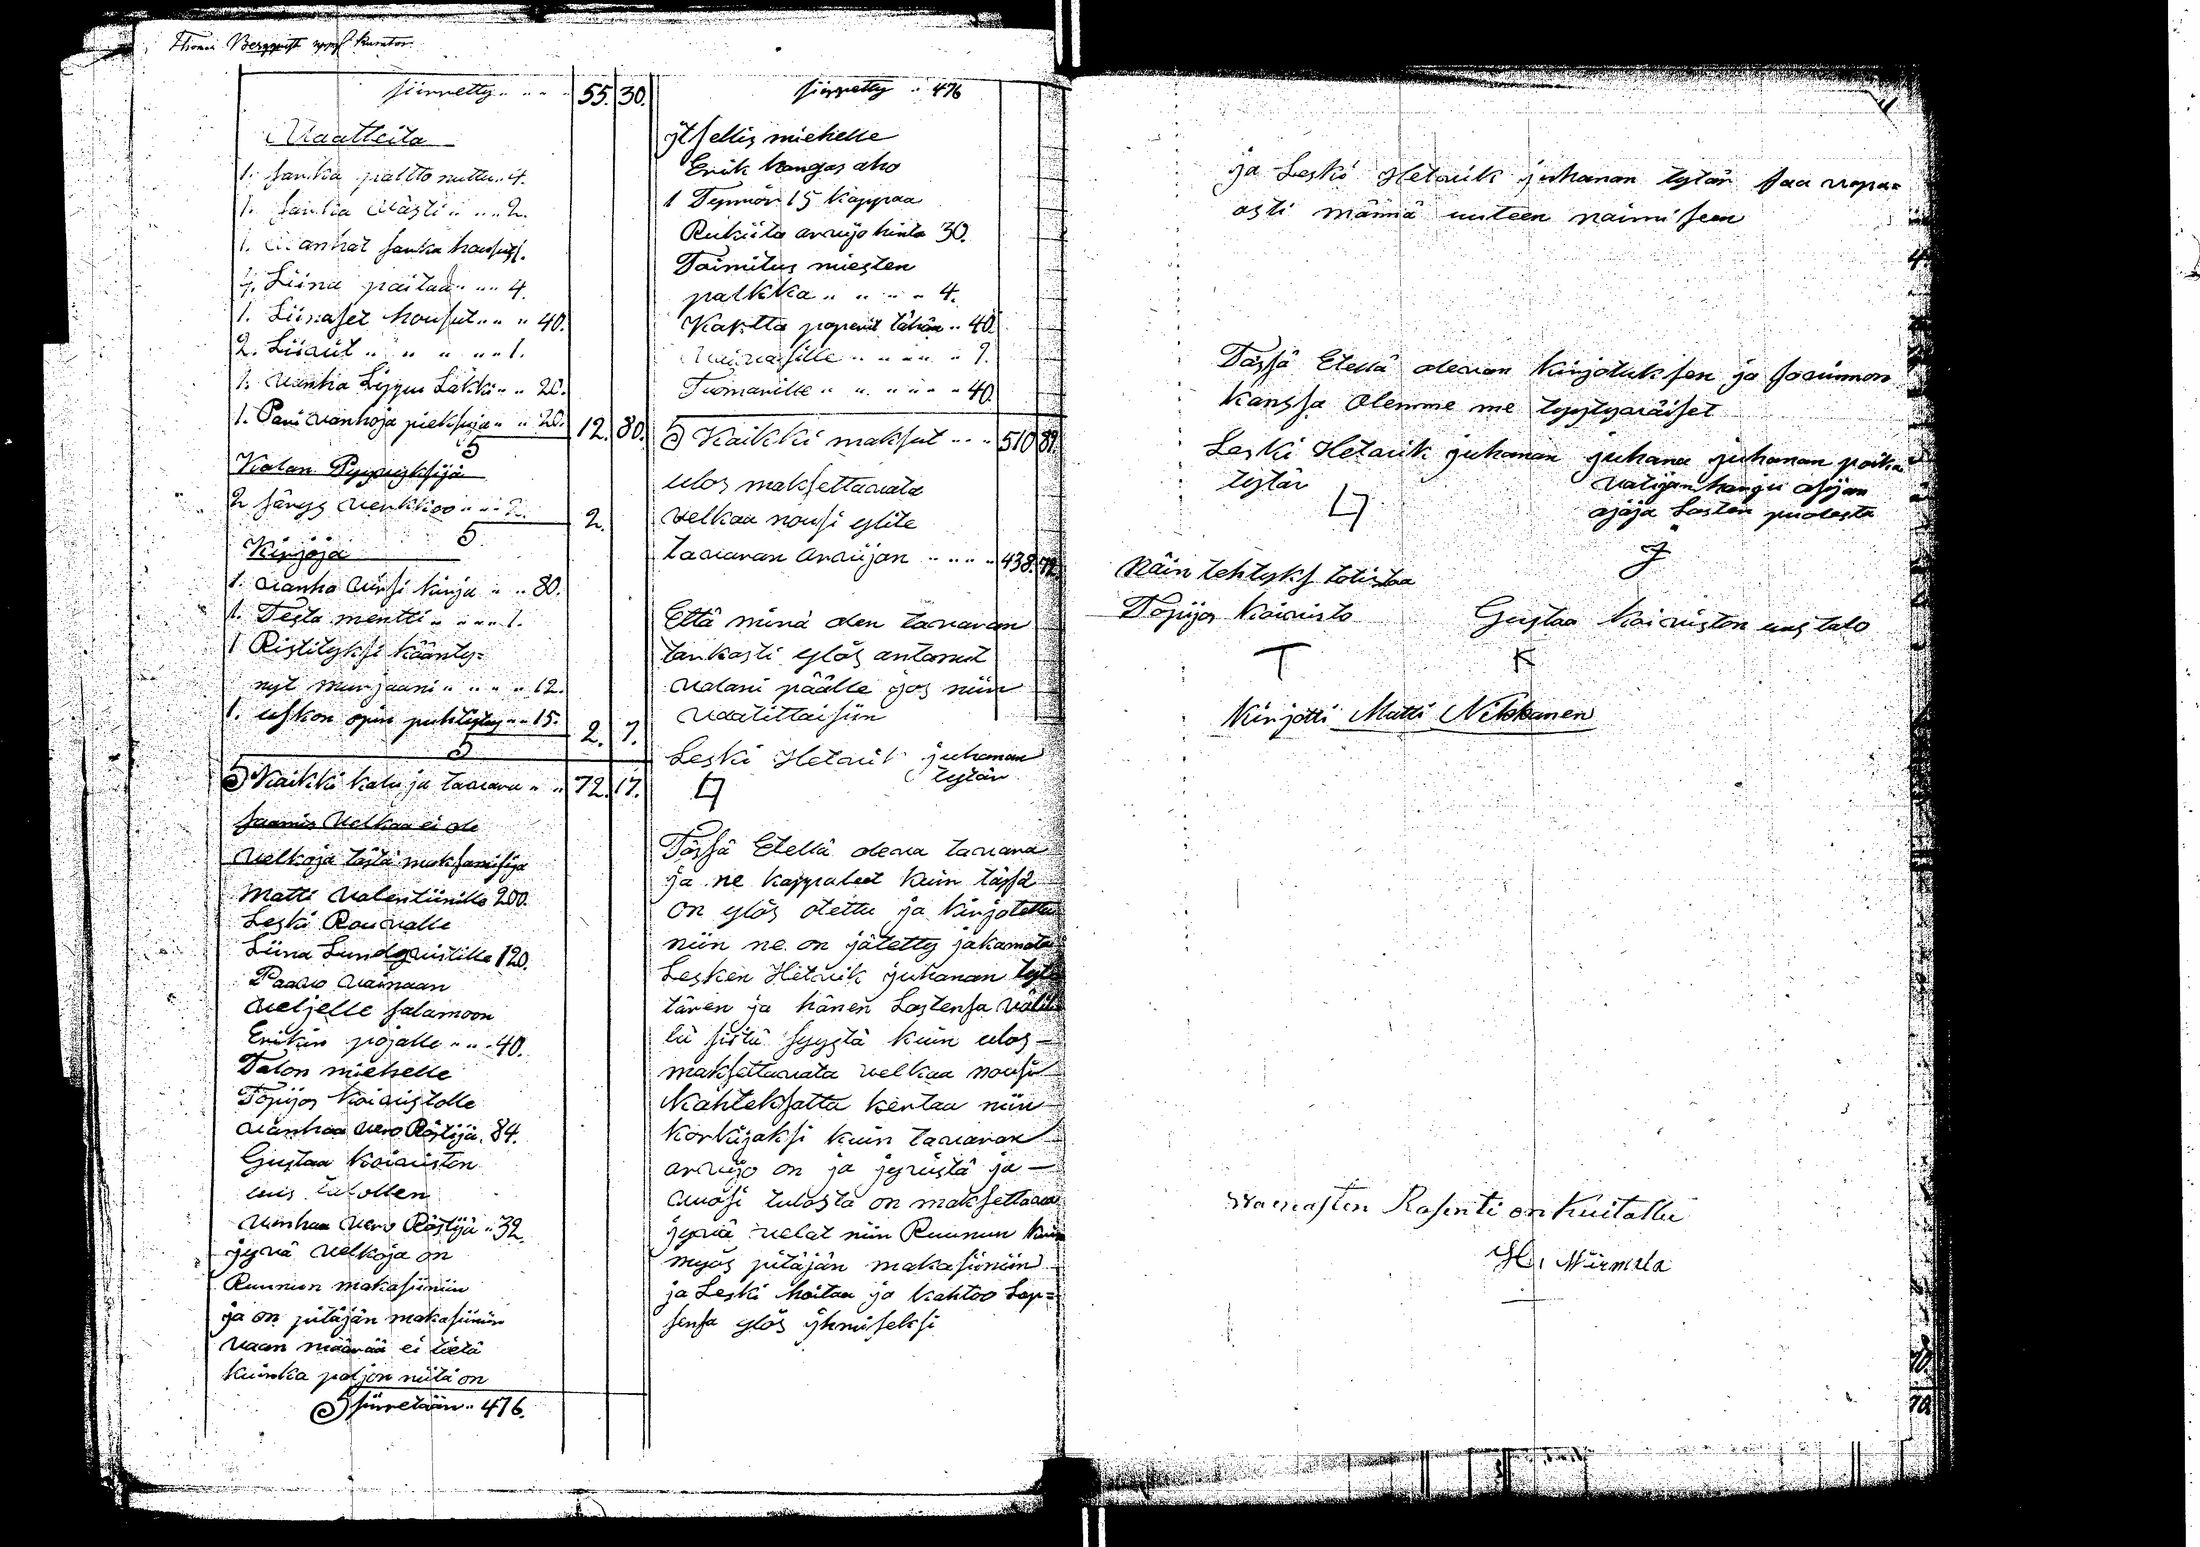 siirretty .. .. .. 55. 30.
Vaatteita
1. sarka paltto nuttu .. 4.
1. sarka västi .. .. .. 2.
1. vanhat sarka housut 1.
4. Liina paitaa .. .. 4.
1. Liinaset housut .. .. .. 40.
2. Liivit .. .. .. .. .. 1.
1. vanha Lippu Lakki .. .. 20.
1. Pari vanhoja pieksuja .. .. 20. 12. 80.
Kalan Pyyvyksijä
2 särys verkkoo .. .. 2. 2.
Kirjoja
1. vanha virsi kirja .. .. 80.
1. Testa mentti .. .. .. 1.
1 Ristityksi käänty=
nyt murjaani .. .. .. .. 12.
1. uskon opin puhtistus .. 15. 2. 7.
S Kaikki kalu ja tavara .. .. 72. 17.
saamis velkaa ei ole
velkoja tästä maksamisija
Matti Valentiinille 200.
Leski Rouvalle
Liina Lundqvistille 120.
Paavo vainaan
veljelle salamoon
Erikin pojalle .. .. 40.
Talon miehelle
Topijos Koivistolle
vanhaa vero Rästijä .. 84.
Gustaa Koiviston
uus talollen
vanhaa vero Rästijä .. 32.
jyvä velkoja on
Ruunun makasiiniin
ja on pitäjän makasiiniin
vaan määrää ei tietä
kuinka paljon niitä on
S siirretään .. 476.
siirretty .. 476
ytsellis miehelle
Erik kangas aho
1 Tynnör 15 kappaa
Rukiita arvijo hinta 30.
Toimitus miesten
palkka .. .. .. .. 4.
Kartta paperit tähän .. 40.
Vaivasille .. .. .. .. 9.
Tuomarille .. .. .. .. .. 40.
S Kaikki maksut .. .. .. 510 89.
ulos maksettavata
velkaa nousi ylite
tavaran arvijon .. .. .. .. 438. 72.
Että minä olen tavaran
tarkasti ylös antanut
valani päälle jos niin
vaatittaisiin
Leski Hetvik juhanan
tytär
Tässä Etellä oleva tavara
ja ne kappaleet kuin tässä
on ylös otettu ja kirjotettu
niin ne on jätetty jakamata
Lesken Hetvik juhanan tyt
tären ja hänen Lastensa välil
lä siitä syystä kuin ulos
maksettavata velkaa nousi
Kahteksatta kertaa niin
korkijaksi kuin tavaran
arvijo on ja jyvistä ja
vuosi tulosta on maksettava
jyvä velat niin Ruunun kuin
myös pitäjän makasiiniin
ja Leski hoitaa ja kahtoo Lap=
sensa ylös ihmiseksi
ja Leski Hetvik juhanan tytär saa vapa=
asti männä uuteen naimiseen
Tässä Etellä olevan kirjotuksen ja sovinnon
kanssa olemme me tyytyväiset
Leski Hetvik juhanan juhana juhanan poika
tytär
ajaja Lasten puolesta
Näin tehtyks totistaa
Topijos Koivisto Gustaa Koiviston uus talo
T K
Kirjotti Matti Nikkanen
Vaivasten Rosenti on Kuitattu
H. Niirmala